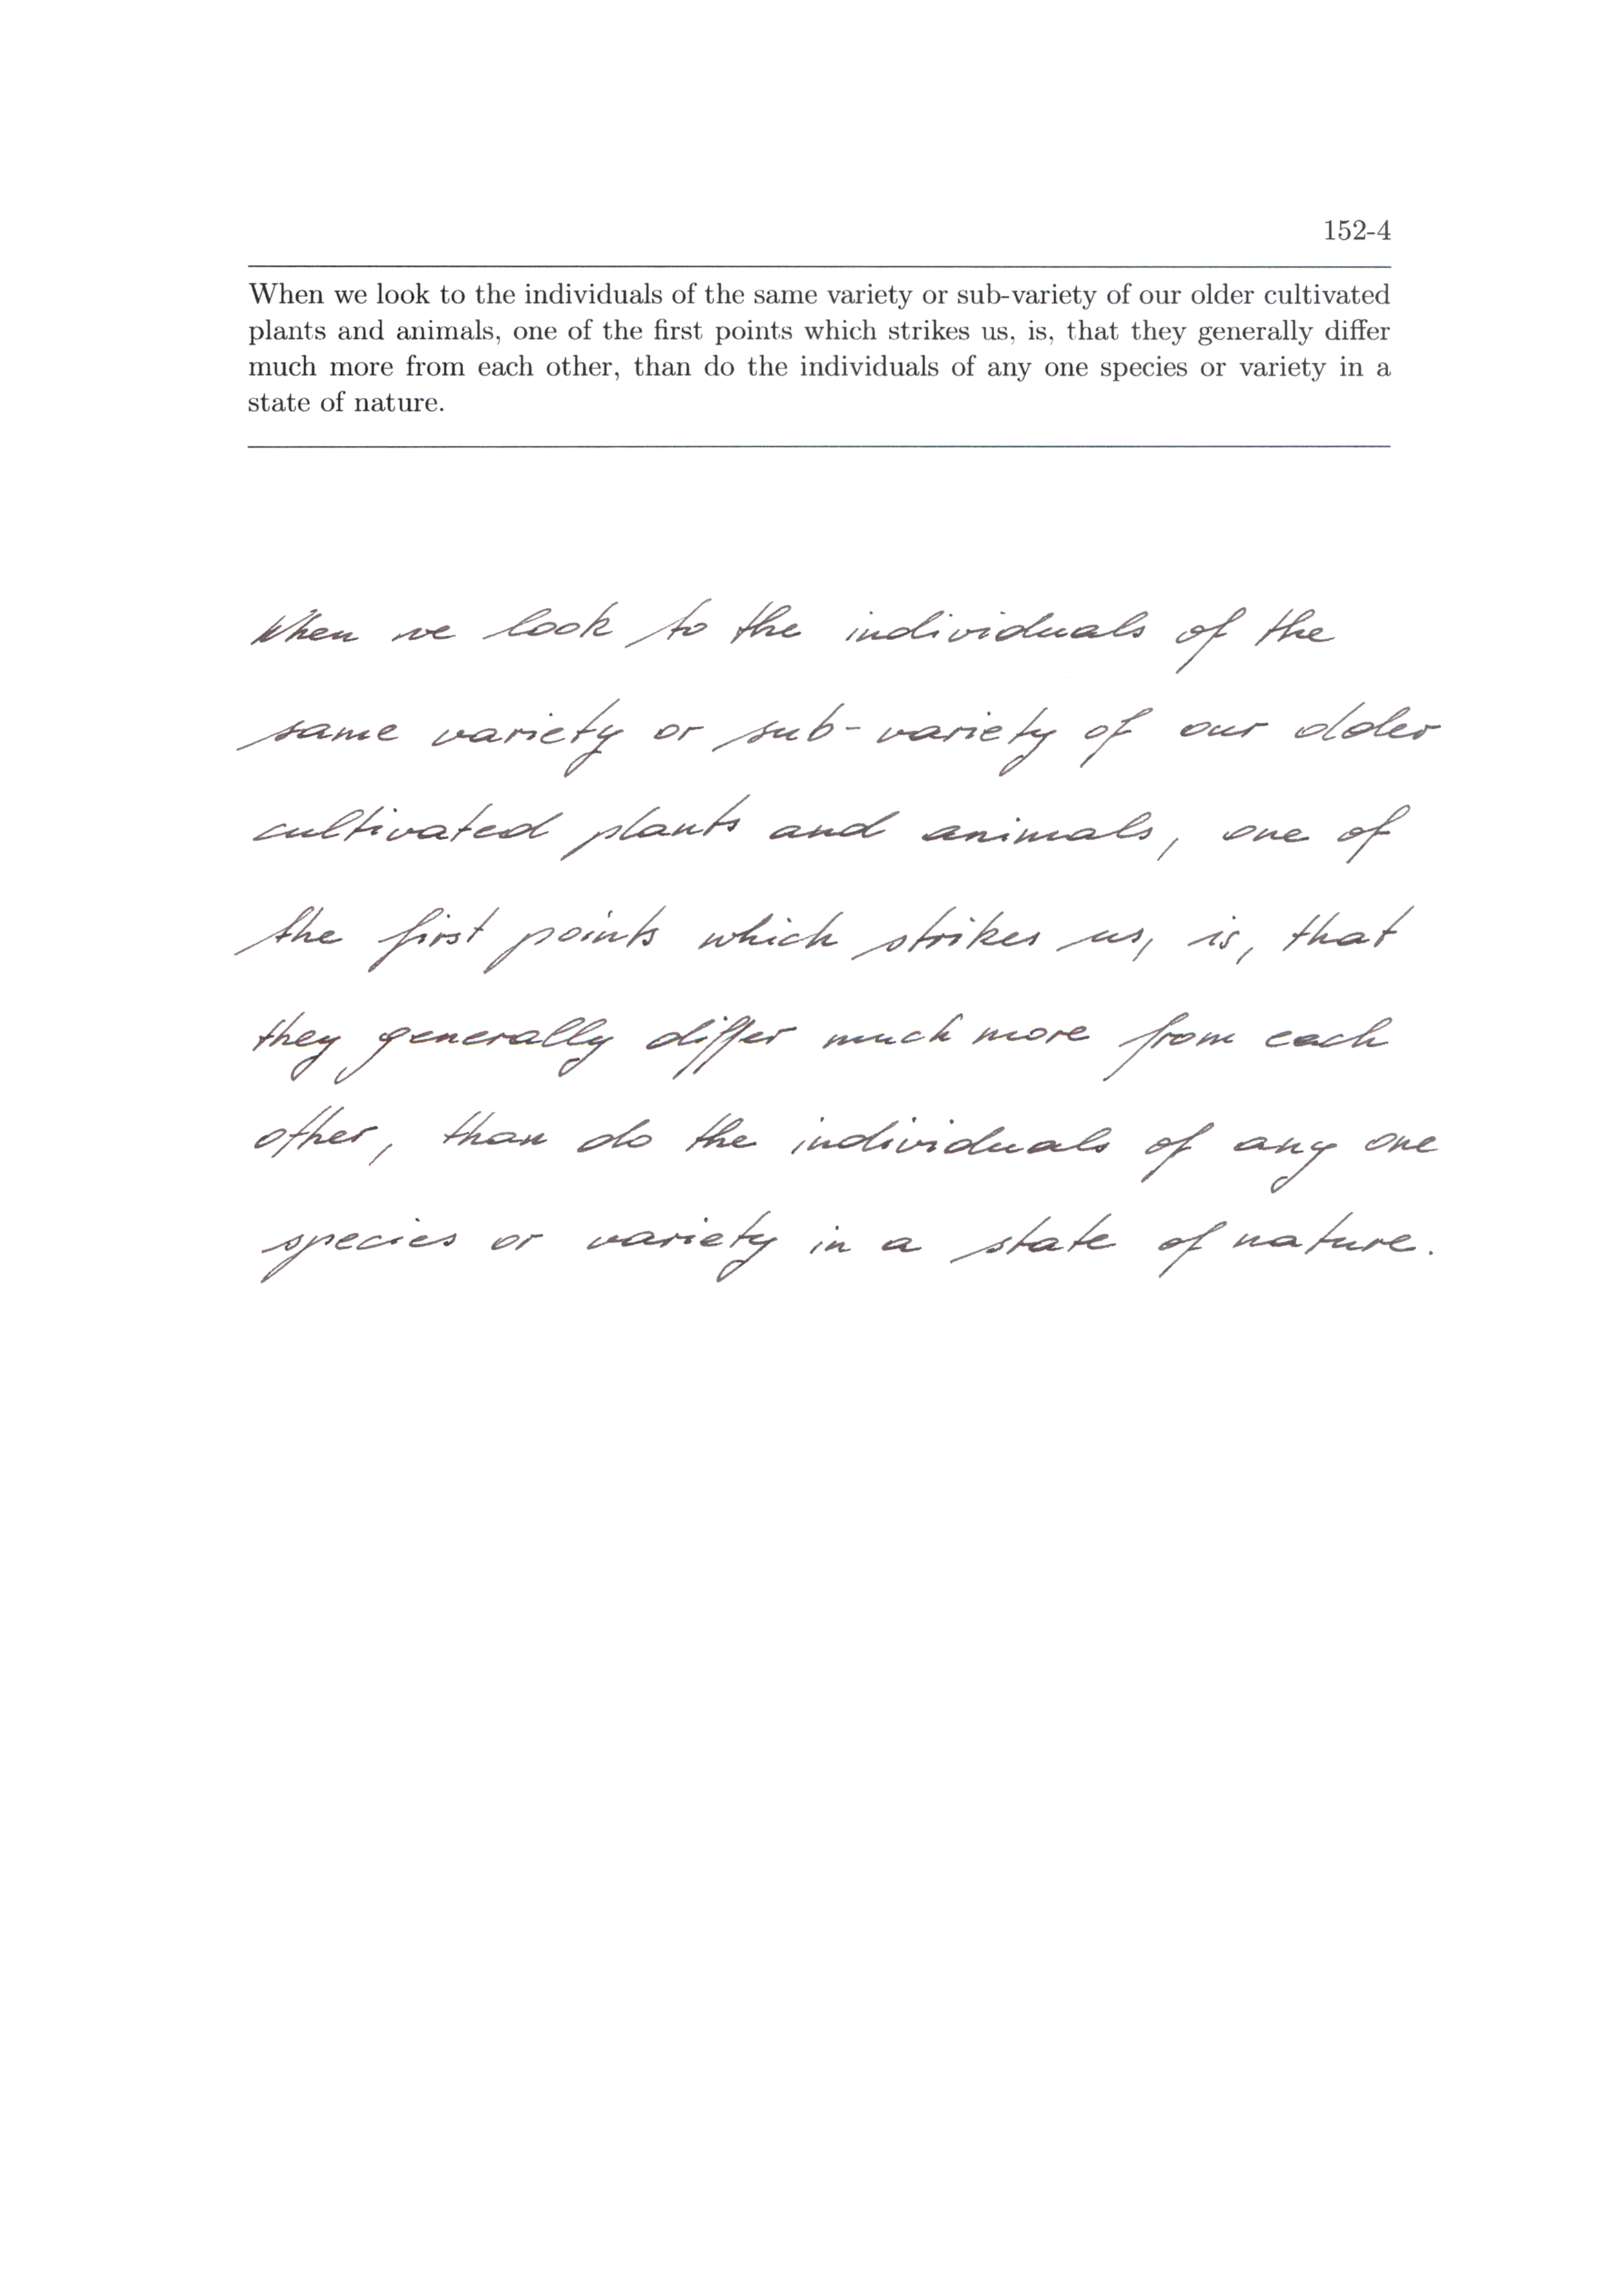 152-4
When we look to the individuals of the same variety or sub-variety of our older cultivated
plants and animals, one of the first points which strikes us, is, that they generally differ
much more from each other, than do the individuals of any one species or variety in a
state of nature.
When we look to the individuals of the
same variety or sub-variety of our older
cultivated plants and animals, one of
the first points which strikes us, is, that
they generally differ much more from each
other, than do the individuals of any one
species or variety in a state of nature.